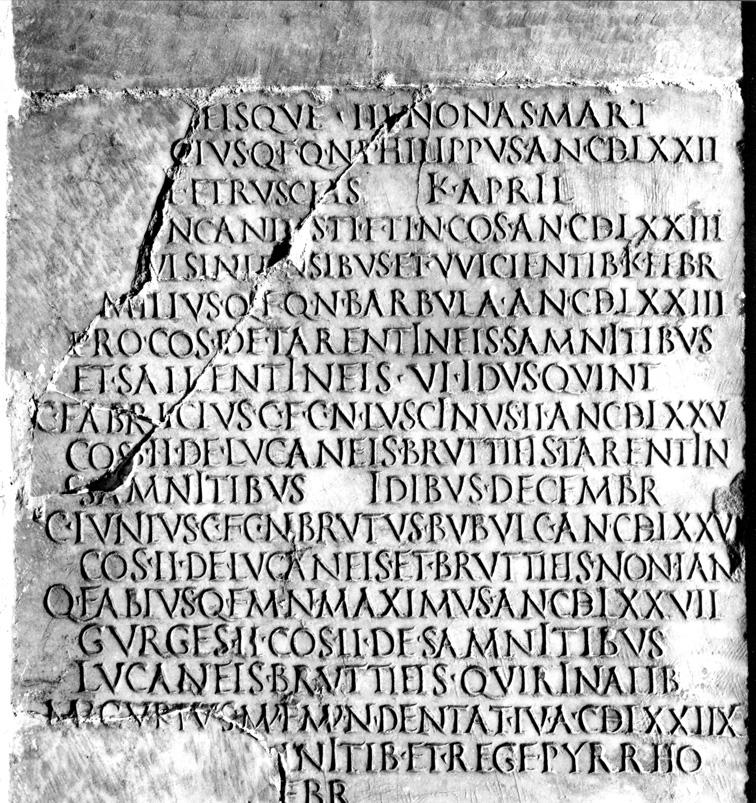 EISQVE · III · NONAS · MART
CIVS · Q · F · Q · N · PHILIPPVS · AN · CDLXXII
ETRVSCEIS K · APRIL
IN COS · AN · CDLXXIII
ET · VVICIENTIB · K · FEBR
MILIVS · Q · F · Q · N · BARBVLA · AN · CDLXXIII
PRO · COS · DE · TARENTINEIS · SAMNITIBVS
ET · SALLENTINEIS · VI · IDVS · QVINT
C · FABRICIVS · C · F · C · N · LVSCINVS · II · AN · CDLXXV
COS · II · DE · LVCANEIS · BRVTTIEIS · TARENTIN
SAMNITIBVS IDIBVS · DECEMBR
C · IVNIVS · C · F · C · N · BRVTVS · BVBVLC · AN · CDLXXV
COS · II · DE · LVCANEIS · ET · BRVTTIEIS · NON · IAN
Q · FABIVS · Q · F · M · N · MAXIMVS · AN · CDLXXVII
GVRGES · II · COS · II · DE · SAMNITIBVS
LVCANEIS · BRVTTIEIS · QVIRINALIB
M · CVRIVS · M · F · M · N · DENTAT · IV · A · CDLXXIIX
NITIB · ET · REGE · PYRRHO
EBR